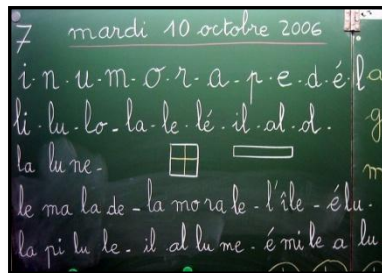 7 mardi 10 octobre 2006
i.n.u.m.o.r.a.p.e.d.é.l
li.lu.lo-la-le-lé.il.al.ol.
la lu ne-
le ma la de-la mo ra le-l'île-élu.
la pi lu le-il al lu me-é mi le a lu